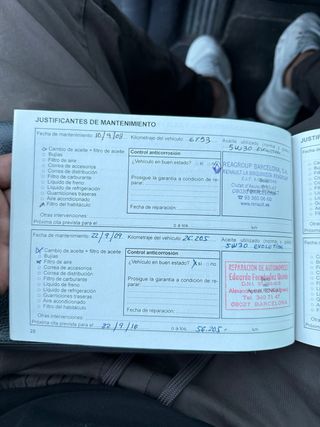 JUSTIFICANTES DE MANTENIMIENTO
Fecha de mantenimiento 10/9/08 Kilometraje del vehículo 6753 Aceite utilizado (norma y grado)
5W30 EVOLUTION
Cambio de aceite + filtro de aceite
Bujías
Filtro de aire
Correa de accesorios
Correa de distribución
Filtro de carburante
Líquido de freno
Líquido de refrigeración
Guarniciones traseras
Aire acondicionado
Filtro del habitáculo
Control anticorrosión
¿Vehículo en buen estado? sí no
Prosigue la garantía a condición de reparar:
Fecha de reparación:
REAGROUP BARCELONA, S.A.
08020 BARCELONA
www.renault.es
Otras intervenciones:
Próxima cita prevista para el o a los km
Fecha de mantenimiento 22/9/09 Kilometraje del vehículo 26.205 Aceite utilizado (norma y grado)
5W30 EVOLUTION
Cambio de aceite + filtro de aceite
Bujías
Filtro de aire
Correa de accesorios
Correa de distribución
Filtro de carburante
Líquido de freno
Líquido de refrigeración
Guarniciones traseras
Aire acondicionado
Filtro del habitáculo
Control anticorrosión
¿Vehículo en buen estado? sí no
Prosigue la garantía a condición de reparar:
Fecha de reparación:
REPARACION DE AUTOMOVILES
Eduardo Fernández
D.N.I.
08027 BARCELONA
Otras intervenciones:
Próxima cita prevista para el 22/9/10 o a los 56.205 km
28